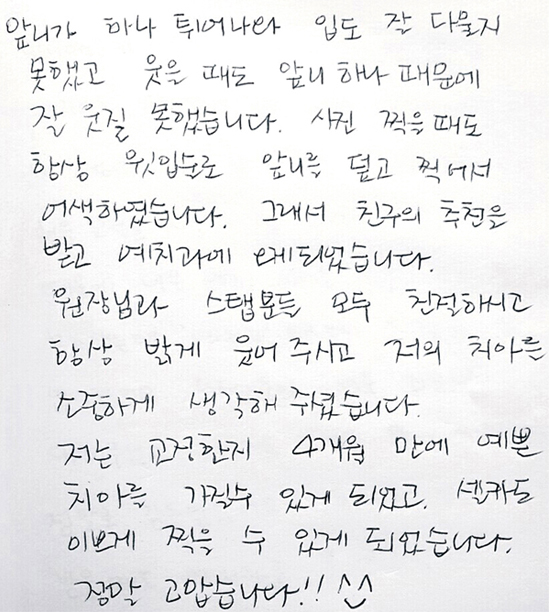 앞니가 하나 튀어나와 입도 잘 다물지
못했고 웃을 때도 앞니 하나 때문에
잘 웃질 못했습니다. 사진 찍을 때도
항상 윗입술로 앞니를 덮고 찍어서
어색하였습니다. 그래서 친구의 추천을
받고 예치과에 오게되었습니다.
원장님과 스탭분들 모두 친절하시고
항상 밝게 웃어 주시고 저의 치아를
소중하게 생각해 주셨습니다.
저는 교정한지 4개월 만에 예쁜
치아를 가질수 있게 되었고, 셀카도
이쁘게 찍을 수 있게 되었습니다.
정말 고맙습니다!! ^^